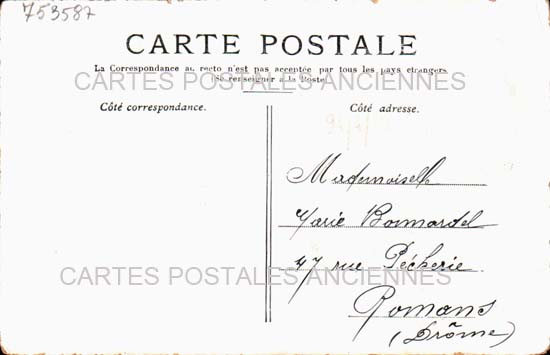 753587
CARTE POSTALE
La Correspondance au recto n'est pas acceptée par tous les pays étrangers
(Se renseigner à la Poste)
CARTES POSTALES ANCIENNES
Côté correspondance.
Côté adresse.
Mademoiselle
Marie Bonnardel
47 rue Pêcherie
CARTES POSTALES ANCIENNES
Romans
(Drôme)